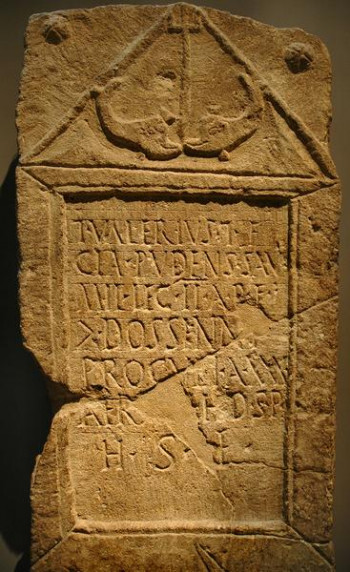 T·VALERIUS·T·F
CLA·PVDENS·SAV
MIL·LEG·II·A·P·F
>·DOSSENN
PROCVL A·XXX
AER D·SP
H·S·E